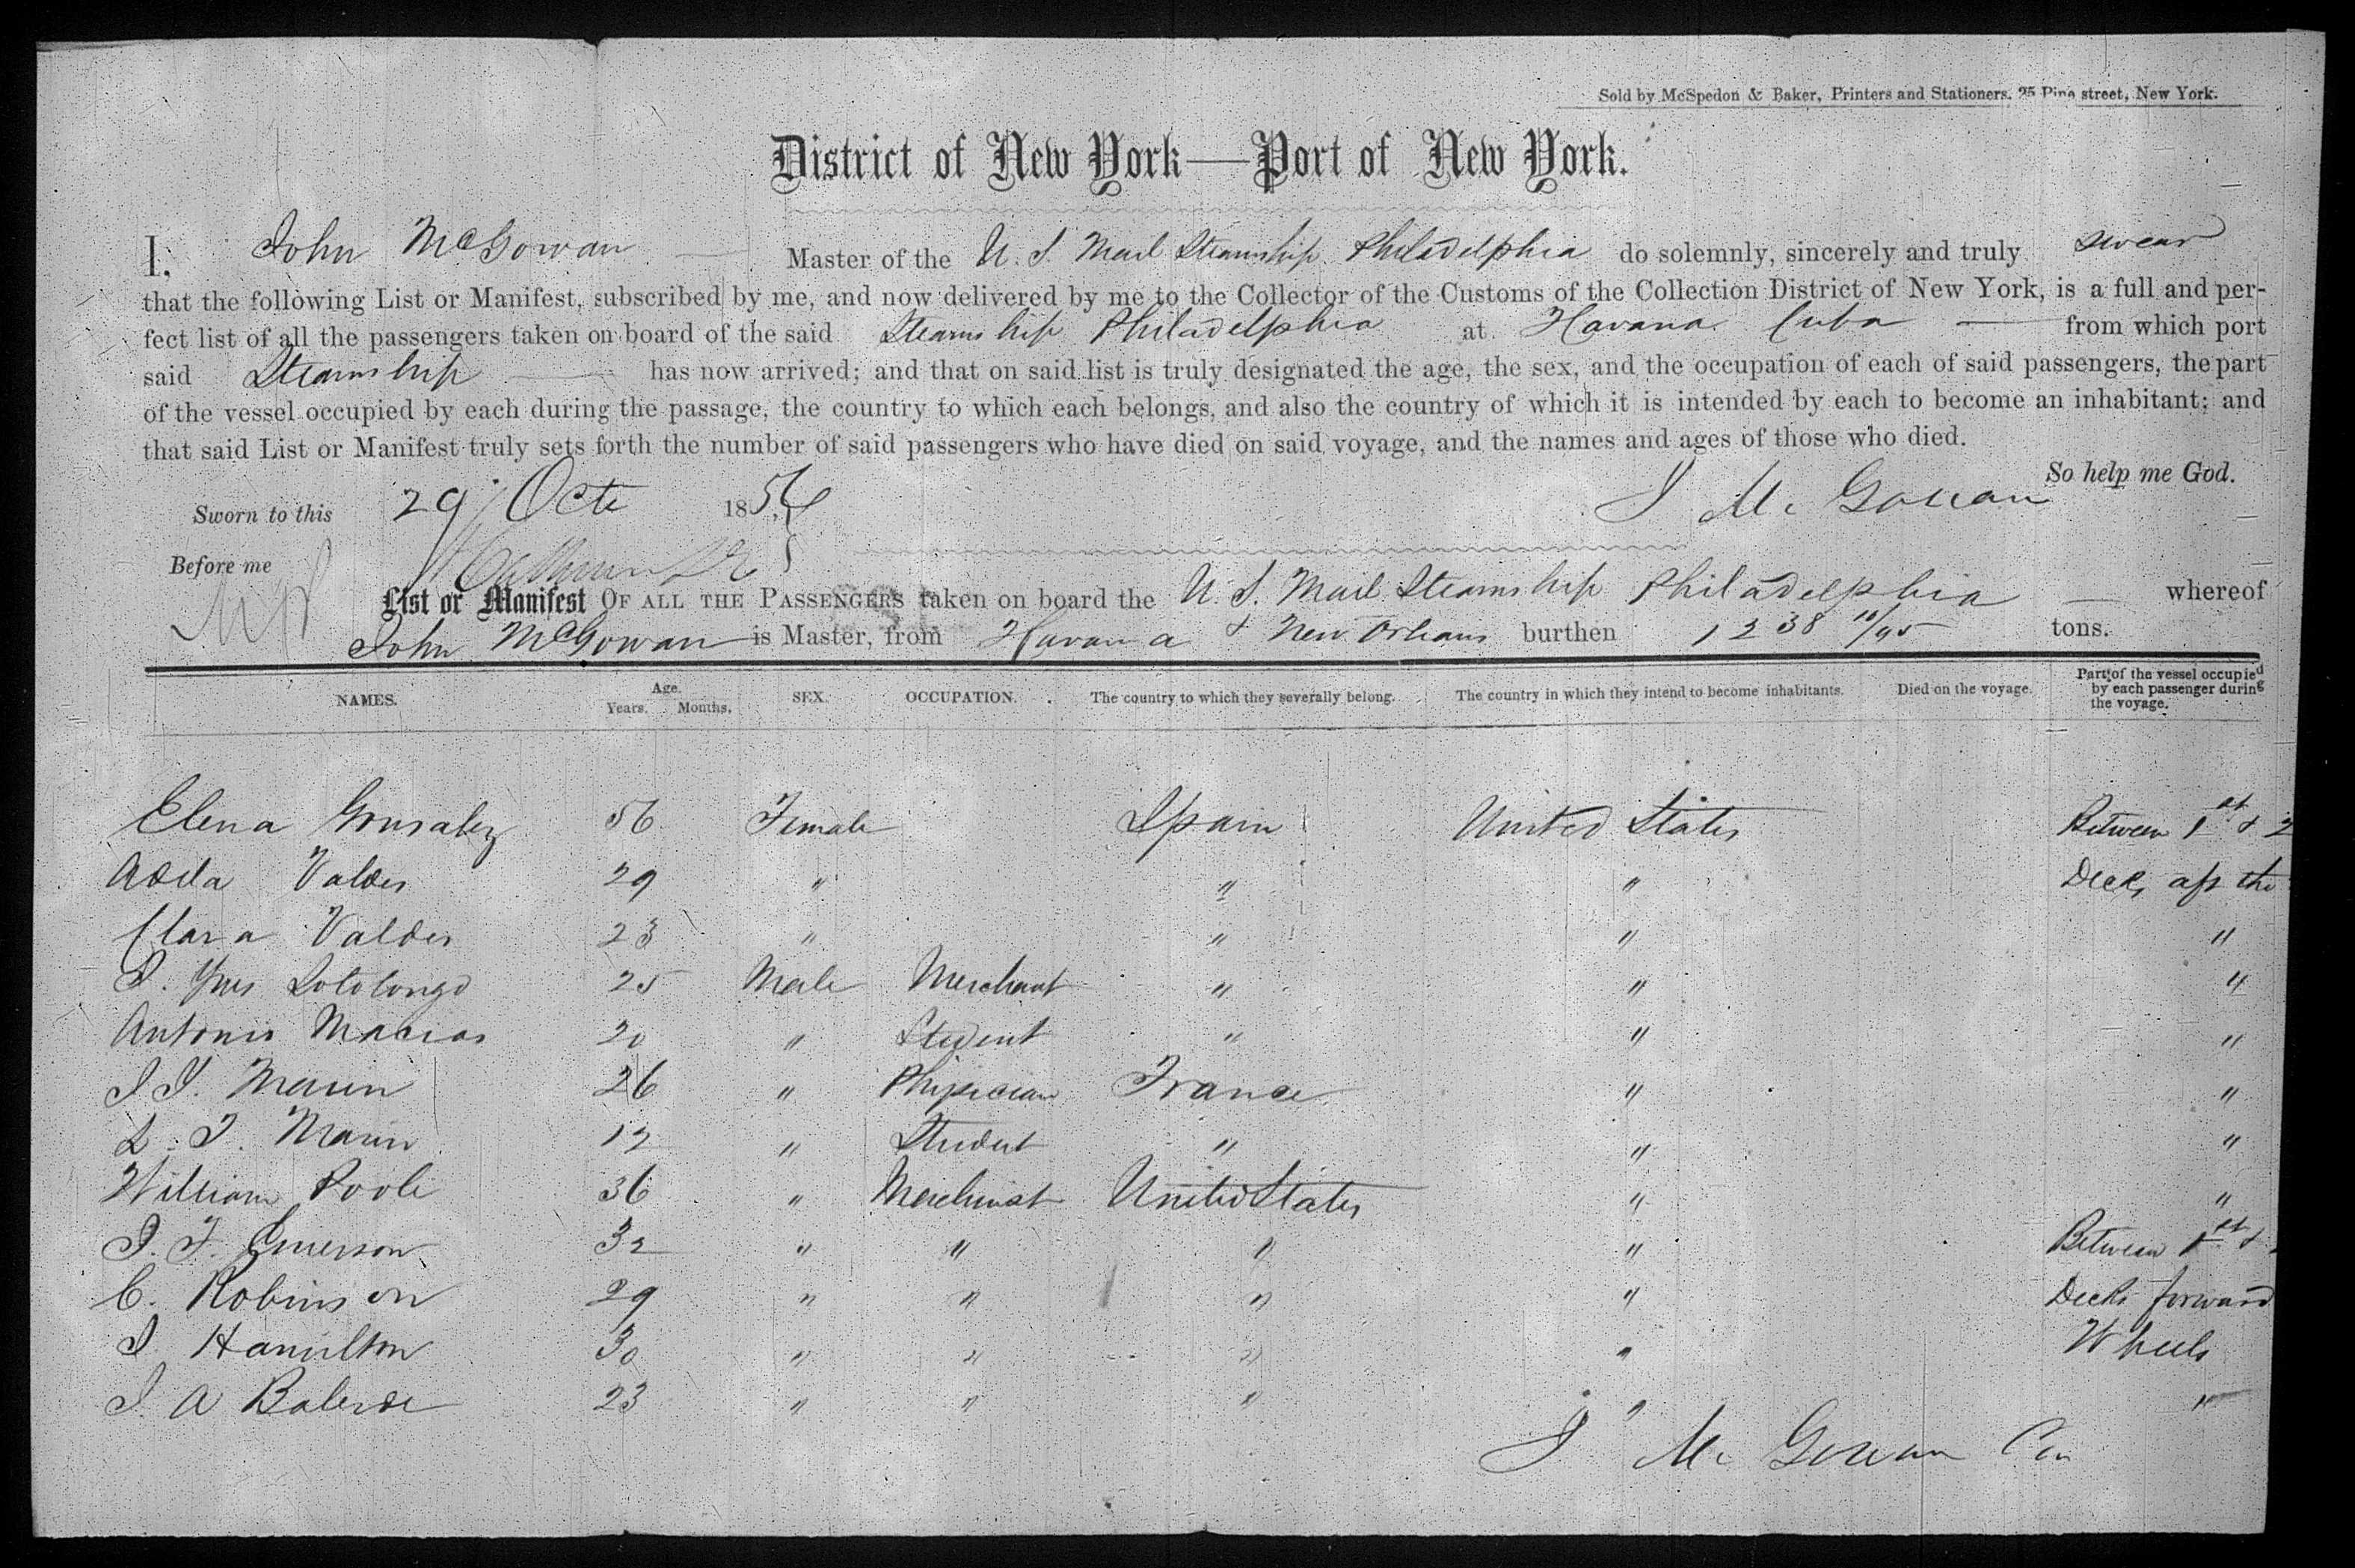 Sold by McSpedon & Baker, Printers and Stationers, 25 Pine street, New York.
District of New York—Port of New York.
I, John McGowan Master of the U. S. Mail Steamship Philadelphia do solemnly, sincerely and truly swear
that the following List or Manifest, subscribed by me, and now delivered by me to the Collector of the Customs of the Collection District of New York, is a full and per-
fect list of all the passengers taken on board of the said Steamship Philadelphia at Havana Cuba from which port
said Steamship has now arrived; and that on said list is truly designated the age, the sex, and the occupation of each of said passengers, the part
of the vessel occupied by each during the passage, the country to which each belongs, and also the country of which it is intended by each to become an inhabitant; and
that said List or Manifest truly sets forth the number of said passengers who have died on said voyage, and the names and ages of those who died.
So help me God.
Sworn to this 29 Octe 1856 J Mc Gowan
Before me
List or Manifest OF ALL THE PASSENGERS taken on board the U. S. Mail Steamship Philadelphia whereof
John McGowan is Master, from Havana & New Orleans burthen 1238 10/95 tons.
NAMES. Age. Years. Months. SEX. OCCUPATION. The country to which they severally belong. The country in which they intend to become inhabitants. Died on the voyage. Part of the vessel occupied by each passenger during the voyage.
Elena Gonsalez 56 Female Spain United States Between 1st & 2
Adda Valdes 29 " " " Decks aft the
Clara Valdes 23 " " " "
Sotolongo 25 Male Merchant " " "
Antonio Macias 20 " Student " " "
J J. Marin 26 " Physician France " "
L. J. Marin 12 " Student " " "
William Poole 36 " Merchant United States " "
J. F. Emerson 32 " " " " Between 1st &
C. Robinson 29 " " " " Decks forward
J. Hamilton 30 " " " " Wheels
J. A 23 " " " " "
J Mc Gowan